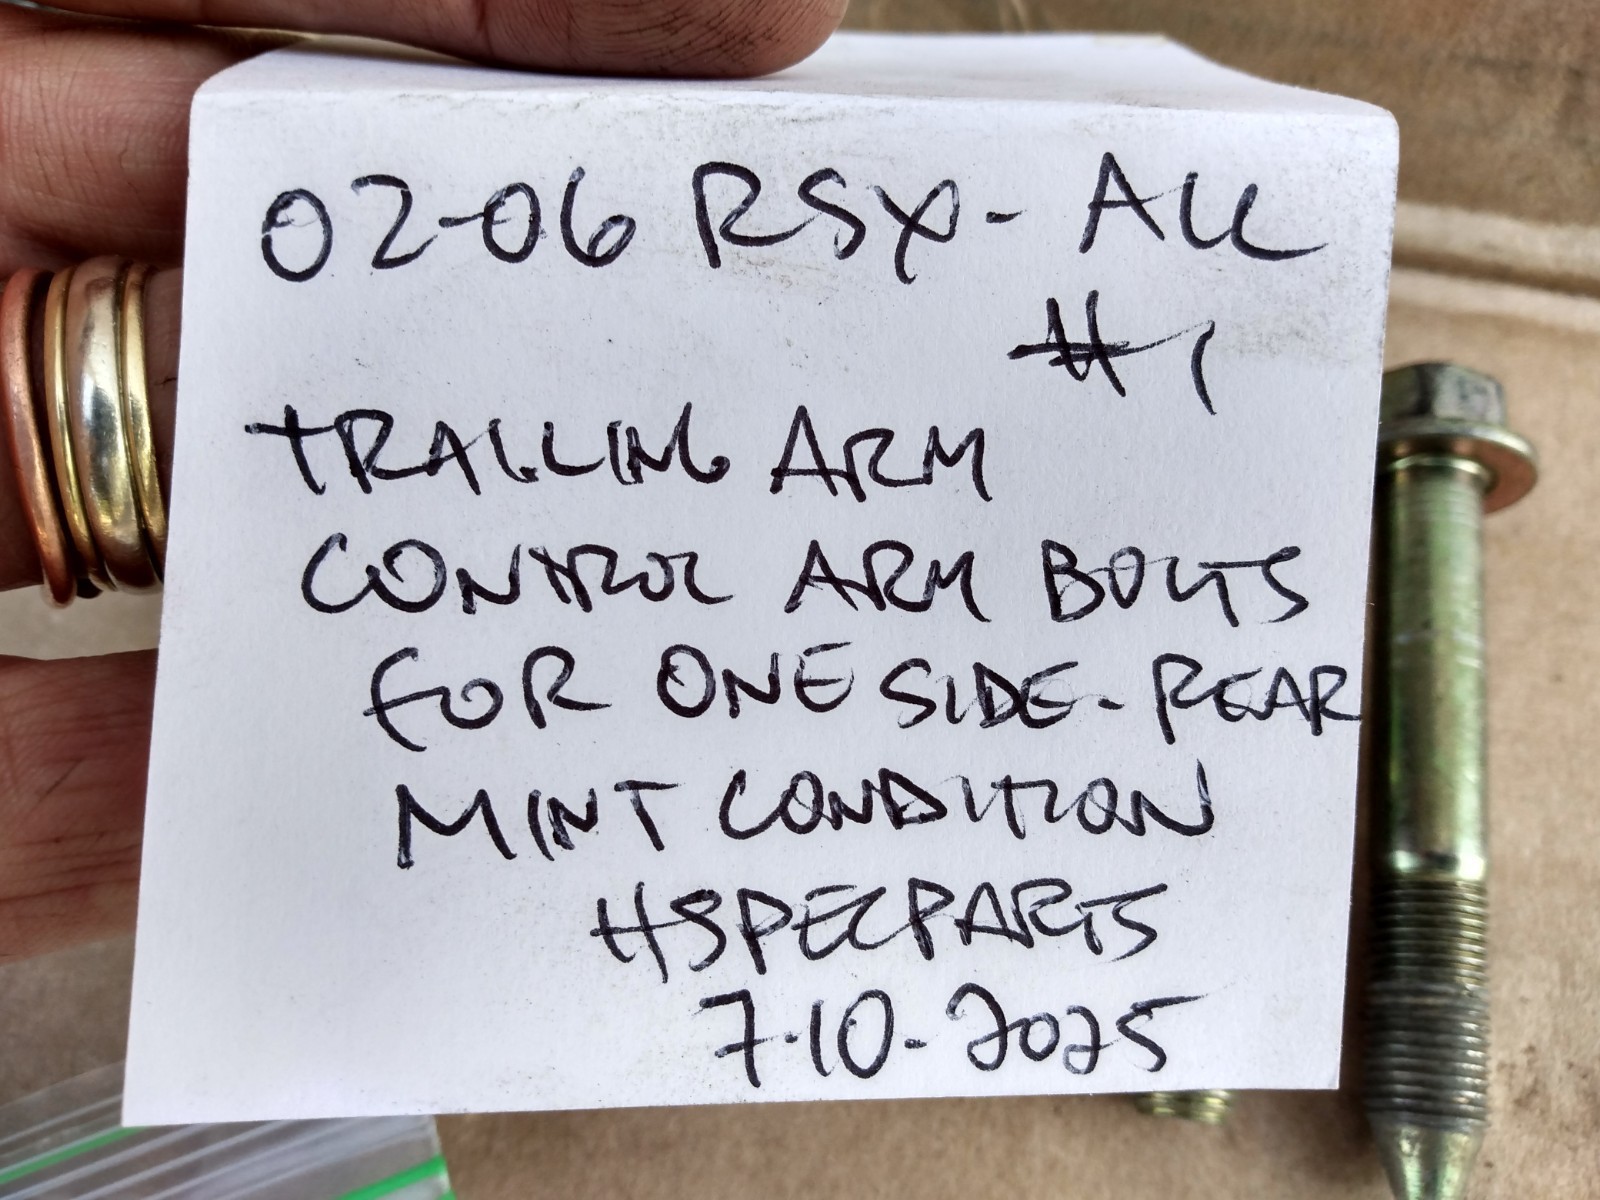 02-06 RSX- ALL
#1
TRAILING ARM
CONTROL ARM BOLTS
FOR ONE SIDE-REAR
MINT CONDITION
HSPECPARTS
7-10-2025